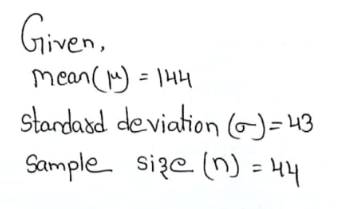 Given,
mean(μ) = 144
Standard deviation (σ)=43
Sample size (n) = 44